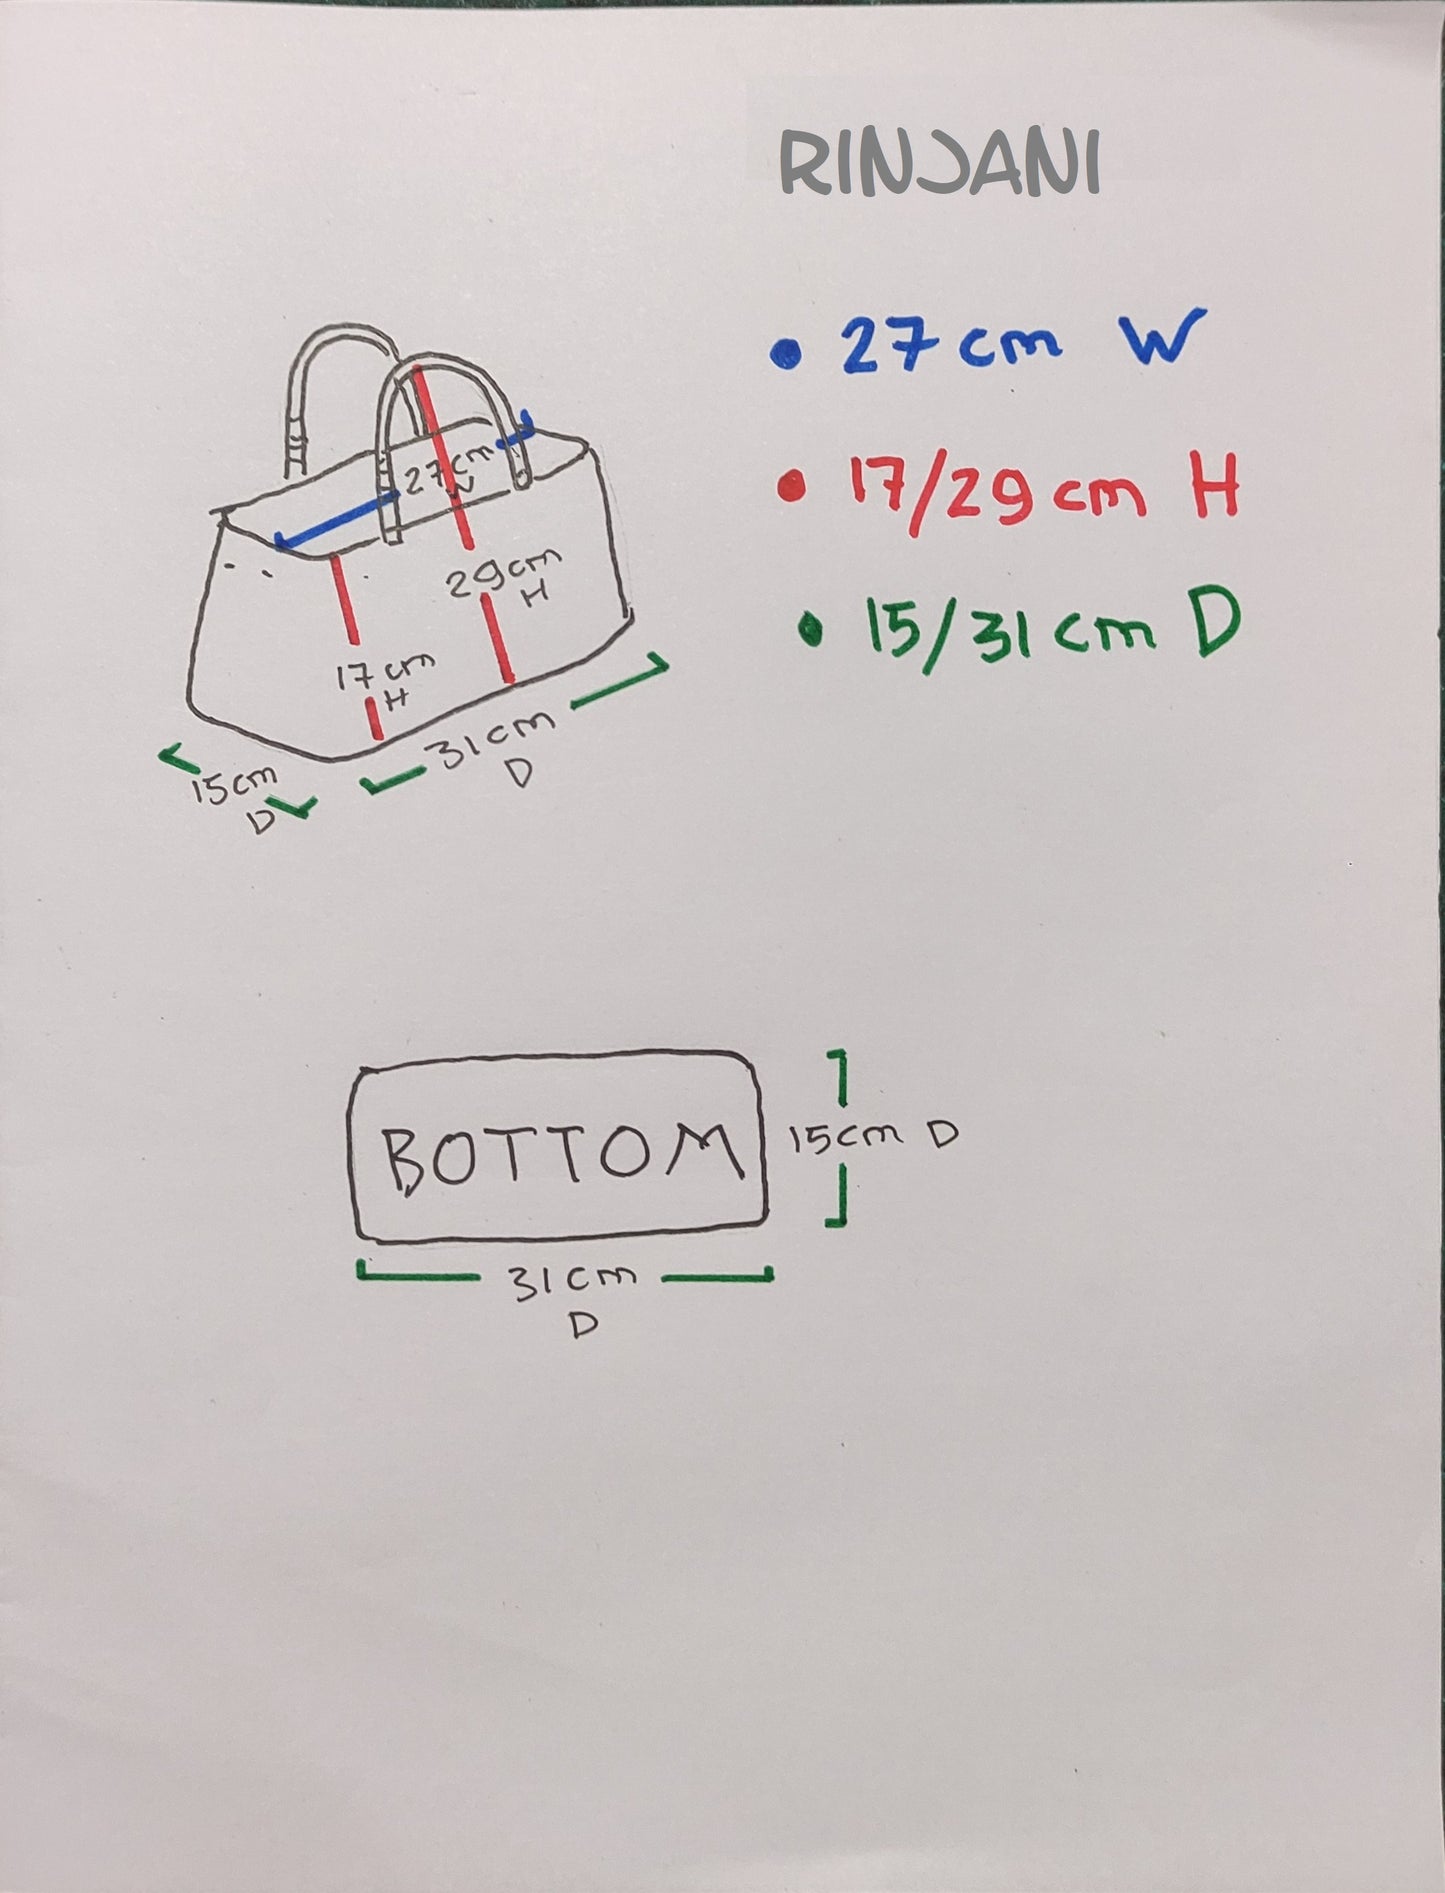 RINJANI
• 27 cm W
• 17/29 cm H
• 15/31 cm D
27cm
W
29cm
H
17 cm
H
31cm
D
15cm
D
BOTTOM
15cm D
31cm
D